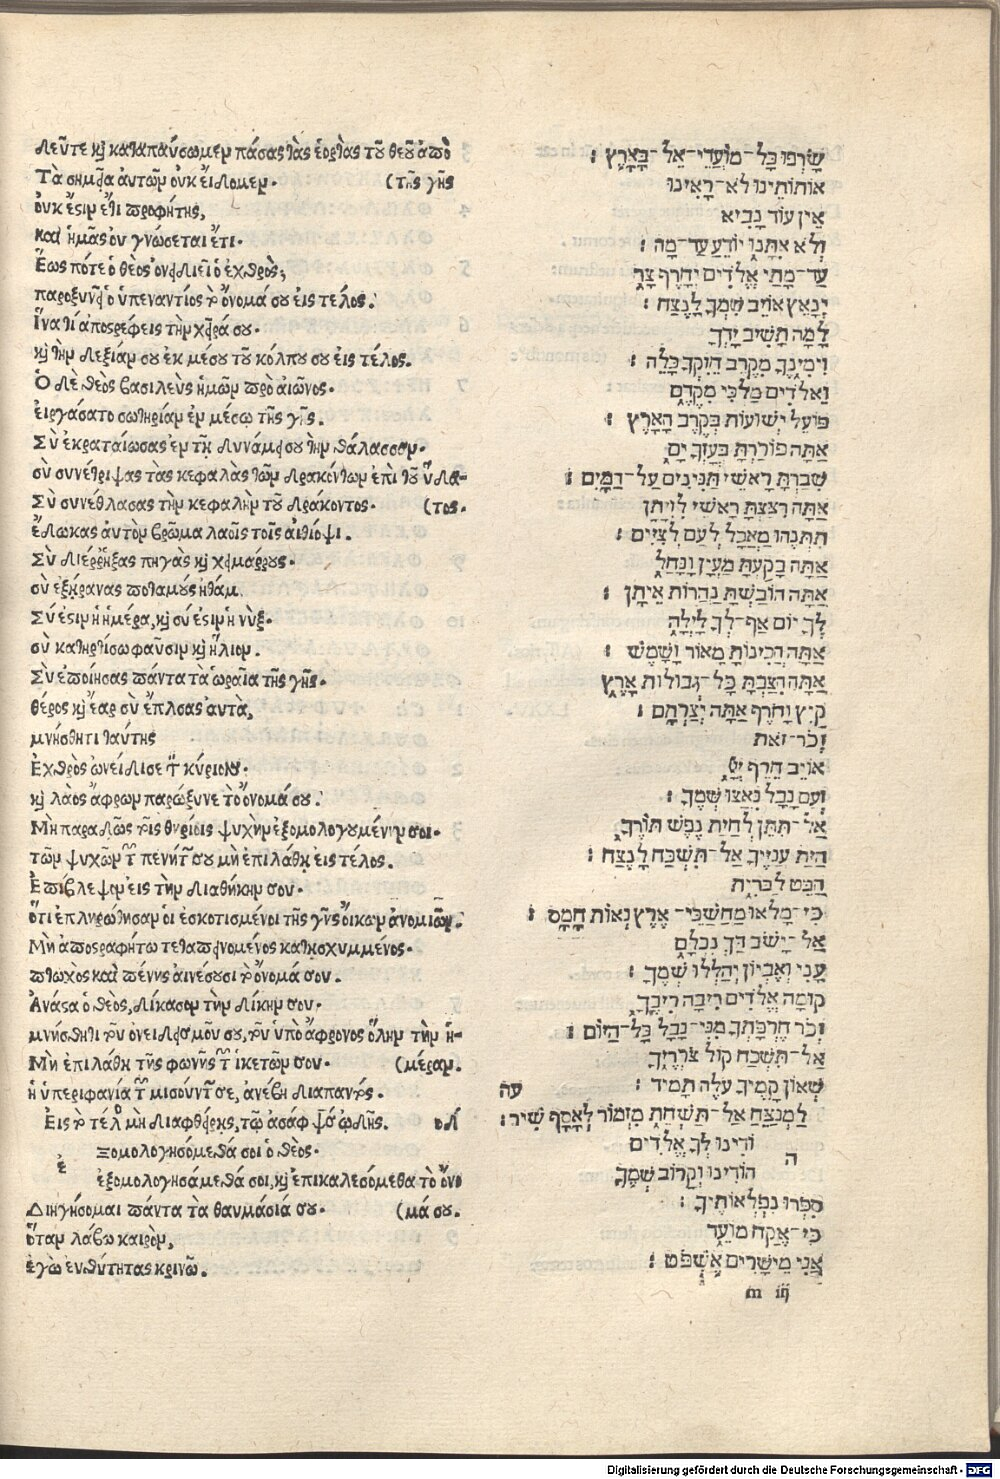 Δεῦτε κ καταπαύσωμεν πάσας τὰς ἑορτὰς τοῦ θεοῦ ἀπὸ
Τὰ σημεῖα ἀυτῶν ὀυκ ἔιδομεν. (τῆς γῆς
ὀυκ ἔστιν ἔτι προφήτης,
καὶ ἡμᾶς ὀυ γνώσεται ἔτι.
Ἕως πότε ὁ θεὸς ὀνειδιεῖ ὁ ἐχθρὸς;
παροξυνεῖ ὁ ὑπεναντίος τὸ ὄνομά σου εἰς τέλος.
Ἵνα τί ἀποστρέφεις τὴν χεῖρά σου.
κ τὴν δεξιάν σου ἐκ μέσου τοῦ κόλπου σου εἰς τέλος.
Ὁ δὲ θεὸς βασιλεὺς ἡμῶν πρὸ αἰῶνος.
ἐιργάσατο σωτηρίαν ἐν μέσῳ τῆς γῆς.
Σὺ ἐκραταίωσας ἐν τῇ δυνάμει σου τὴν θάλασσαν.
σὺ συνέτριψας τὰς κεφαλὰς τῶν δρακόντων ἐπὶ τοῦ ὕδα-
Σὺ συνέθλασας τὴν κεφαλὴν τοῦ δράκοντος. (τος.
ἔδωκας ἀυτὸν βρῶμα λαοῖς τοῖς αἰθίοψι.
Σὺ διέρρηξας πηγὰς κ χειμάρρους.
σὺ ἐξήρανας ποταμοὺς ἠθάμ.
Σύ ἐστιν ἡ ἡμέρα, κ σύ ἐστιν ἡ νὺξ.
σὺ κατηρτίσω φαῦσιν κ ἥλιον.
Σὺ ἐποίησας πάντα τὰ ὡραῖα τῆς γῆς.
θέρος κ ἔαρ σὺ ἔπλασας ἀυτὰ,
μνήσθητι ταύτης
Ἐχθρὸς ὠνείδισε τὸν κύριον.
κ λαὸς ἄφρων παρώξυνε τὸ ὄνομά σου.
Μὴ παραδῶς τοῖς θηρίοις ψυχὴν ἐξομολογουμένην σοι.
τῶν ψυχῶν τῶν πενήτων σου μὴ ἐπιλάθῃ εἰς τέλος.
Ἐπίβλεψον εἰς τὴν διαθήκην σου.
ὅτι ἐπληρώθησαν οἱ ἐσκοτισμένοι τῆς γῆς οἴκων ἀνομιῶν.
Μὴ ἀποστραφήτω τεταπεινομένος κατῃσχυμμένος.
πτωχὸς καὶ πένης αἰνέσουσι τὸ ὄνομά σου.
Ἀνάστα ὁ θεὸς, δίκασον τὴν δίκην σου.
μνήσθητι τοῦ ὀνειδισμοῦ σου, τοῦ ὑπὸ ἄφρονος ὅλην τὴν ἡ-
Μὴ ἐπιλάθῃ τῆς φωνῆς τῶν ἱκετῶν σου. (μέραν.
ἡ ὑπεριφανία τῶν μισούντων σε, ἀνέβη διαπαντός.
Εἰς τὸ τέλος μὴ διαφθείρῃς, τῷ ἀσάφ ψαλμὸς ᾠδῆς. οδ
ἐ
ξομολογησόμεθά σοι ὁ θεὸς.
ἐξομολογησάμεθά σοι, κ ἐπικαλεσόμεθα τὸ ὄνο
Διηγήσομαι πάντα τὰ θαυμάσιά σου. (μά σου.
ὅταν λάβω καιρὸν,
ἐγὼ ἐυθύτητας κρινῶ.
שָׂרְפוּ כָל־מוֹעֲדֵי־אֵל־בָּאָרֶץ׃
אוֹתוֹתֵינוּ לֹא־רָאִינוּ
אֵין עוֹד נָבִיא
וְלֹא אִתָּנוּ יוֹדֵעַ עַד־מָה׃
עַד־מָתַי אֱלֹדִים יְחָרֶף צָר
יְנָאֵץ אוֹיֵב שִׁמְךָ לָנֶצַח׃
לָמָּה תָשִׁיב יָדְךָ
וִימִינֶךָ מִקֶּרֶב חֵוקְךָ כַלֵּה׃
וֵאלֹדִים מַלְכִּי מִקֶּדֶם
פּוֹעֵל יְשׁוּעוֹת בְּקֶרֶב הָאָרֶץ׃
אַתָּה פוֹרַרְתָּ בְעָזְּךָ יָם
שִׁבַּרְתָּ רָאשֵׁי תַנִּינִים עַל־הַמָּיִם׃
אַתָּה רִצַּצְתָּ רָאשֵׁי לִוְיָתָן
תִּתְּנֶהוּ מַאֲכָל לְעַם לְצִיִּים׃
אַתָּה בָקַעְתָּ מַעְיָן וָנָחַל
אַתָּה הוֹבַשְׁתָּ נַהֲרוֹת אֵיתָן׃
לְךָ יוֹם אַף־לְךָ לָיְלָה
אַתָּה הֲכִינוֹתָ מָאוֹר וָשָׁמֶשׁ׃
אַתָּה הִצַּבְתָּ כָּל־גְּבוּלוֹת אָרֶץ
קַיִץ וָחֹרֶף אַתָּה יְצַרְתָּם׃
זְכָר־זֹאת
אוֹיֵב חֵרֵף יְיָ
וְעַם נָבָל נִאֲצוּ שְׁמֶךָ׃
אַל־תִּתֵּן לְחַיַּת נֶפֶשׁ תּוֹרֶךָ
חַיַּת עֲנִיֶּיךָ אַל־תִּשְׁכַּח לָנֶצַח׃
הַבֵּט לַבְּרִית
כִּי־מָלְאוּ מַחֲשַׁכֵּי־אֶרֶץ נְאוֹת חָמָס׃
אַל־יָשֹׁב דַּךְ נִכְלָם
עָנִי וְאֶבְיוֹן יְהַלְלוּ שְׁמֶךָ׃
קוּמָה אֱלֹדִים רִיבָה רִיבֶךָ
זְכֹר חֶרְפָּתְךָ מִנִּי־נָבָל כָּל־הַיּוֹם׃
אַל־תִּשְׁכַּח קוֹל צֹרְרֶיךָ
שְׁאוֹן קָמֶיךָ עֹלֶה תָמִיד׃ עה
לַמְנַצֵּחַ אַל־תַּשְׁחֵת מִזְמוֹר לְאָסָף שִׁיר׃
ה
וֹדִינוּ לְךָ אֱלֹדִים
הוֹדִינוּ וְקָרוֹב שְׁמֶךָ
סִפְּרוּ נִפְלְאוֹתֶיךָ׃
כִּי־אֶקַּח מוֹעֵד
אֲנִי מֵישָׁרִים אֶשְׁפֹּט׃
m iij
Digitalisierung gefördert durch die Deutsche Forschungsgemeinschaft - DFG